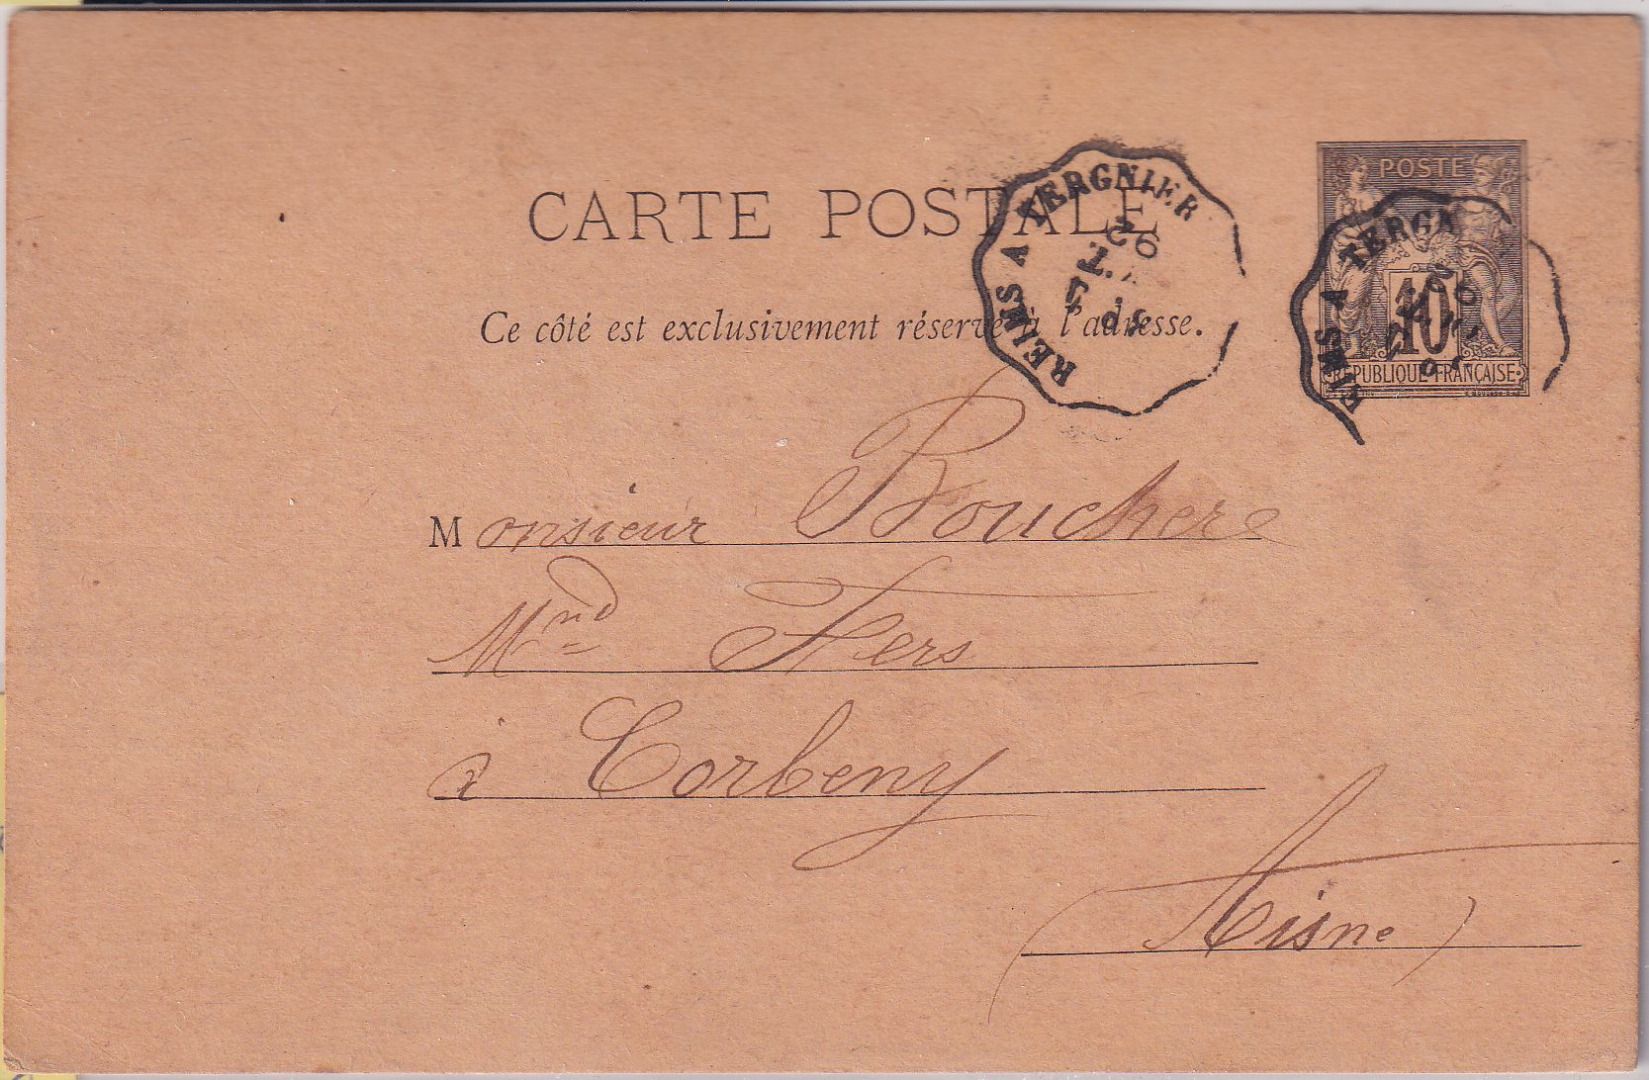 CARTE POSTALE
Ce côté est exclusivement réservé à l'adresse.
REIMS A TERGNIER
POSTE
10
RÉPUBLIQUE FRANÇAISE
REIMS A TERGN
Monsieur Bouchere
Mnd Fers
à Corbeny
(Aisne)